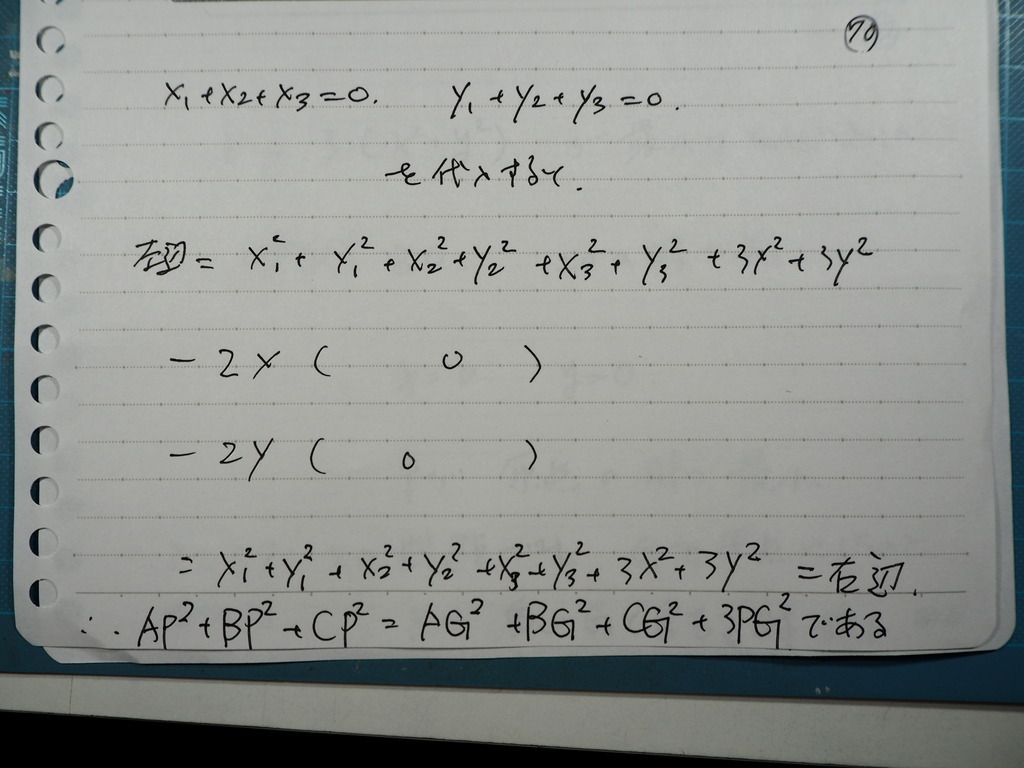 79
x₁+x₂+x₃=0. y₁+y₂+y₃=0.
を代入すると.
左辺= x₁²+ y₁²+x₂²+y₂²+x₃²+ y₃²+3x²+3y²
-2x( 0 )
-2y( 0 )
= x₁²+y₁²+x₂²+y₂²+x₃²+y₃²+3x²+3y² =右辺.
∴ AP²+BP²+CP²= AG²+BG²+CG²+3PG²である